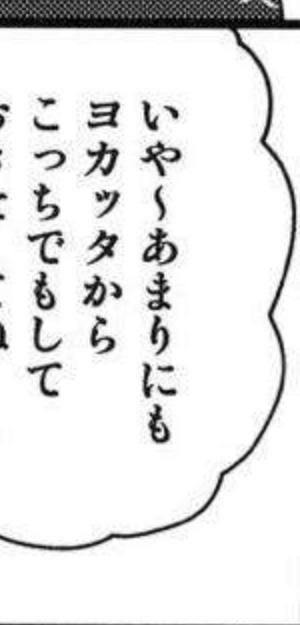 いや〜あまりにも
ヨカッタから
こっちでもして